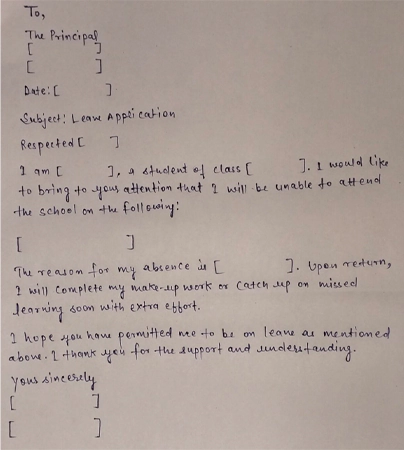 To,
The Principal
[ ]
[ ]
Date: [ ]
Subject: Leave Application
Respected [ ]
I am [ ], a student of class [ ]. I would like
to bring to your attention that I will be unable to attend
the school on the following:
[ ]
The reason for my absence is [ ]. Upon return,
I will complete my make-up work or catch up on missed
learning soon with extra effort.
I hope you have permitted me to be on leave as mentioned
above. I thank you for the support and understanding.
Yous sincerely
[ ]
[ ]